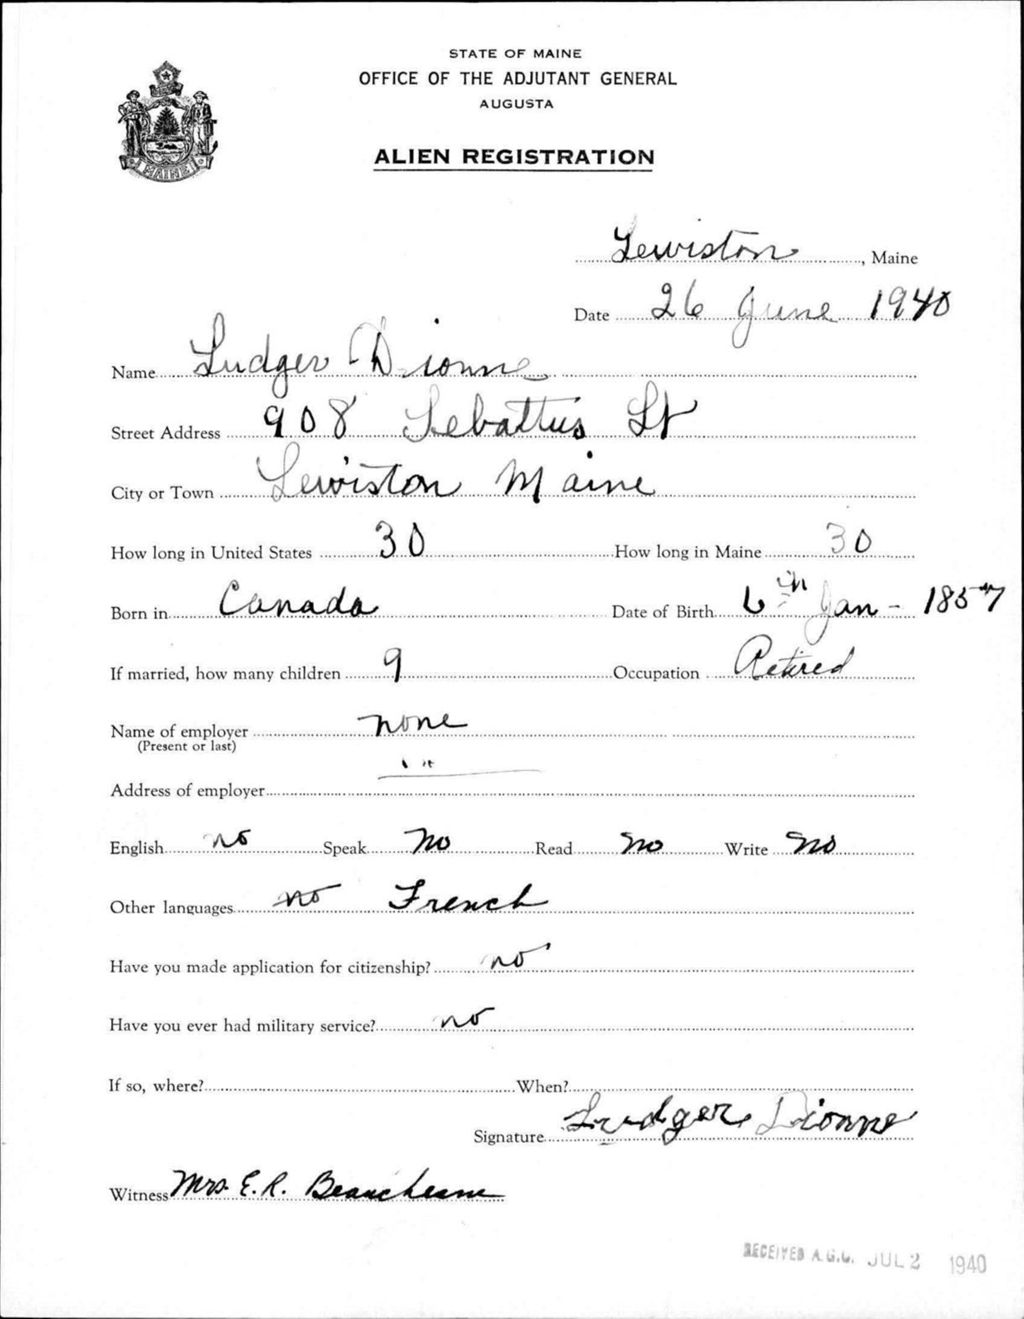 STATE OF MAINE
OFFICE OF THE ADJUTANT GENERAL
AUGUSTA
ALIEN REGISTRATION
MAINE
Lewiston, Maine
Date 26 June 1940
Name Ludger Dionne
Street Address 908 Sebattus St
City or Town Lewiston Maine
How long in United States 30 How long in Maine 30
Born in Canada Date of Birth 6th Jan - 1857
If married, how many children 9 Occupation Retired
Name of employer none
(Present or last)
Address of employer " "
English no Speak No Read No Write No
Other languages no French
Have you made application for citizenship? no
Have you ever had military service? no
If so, where? When?
Signature Ludger Dionne
Witness Mrs. E. R. Beauchesne
RECEIVED A.G.O. JUL 2 1940